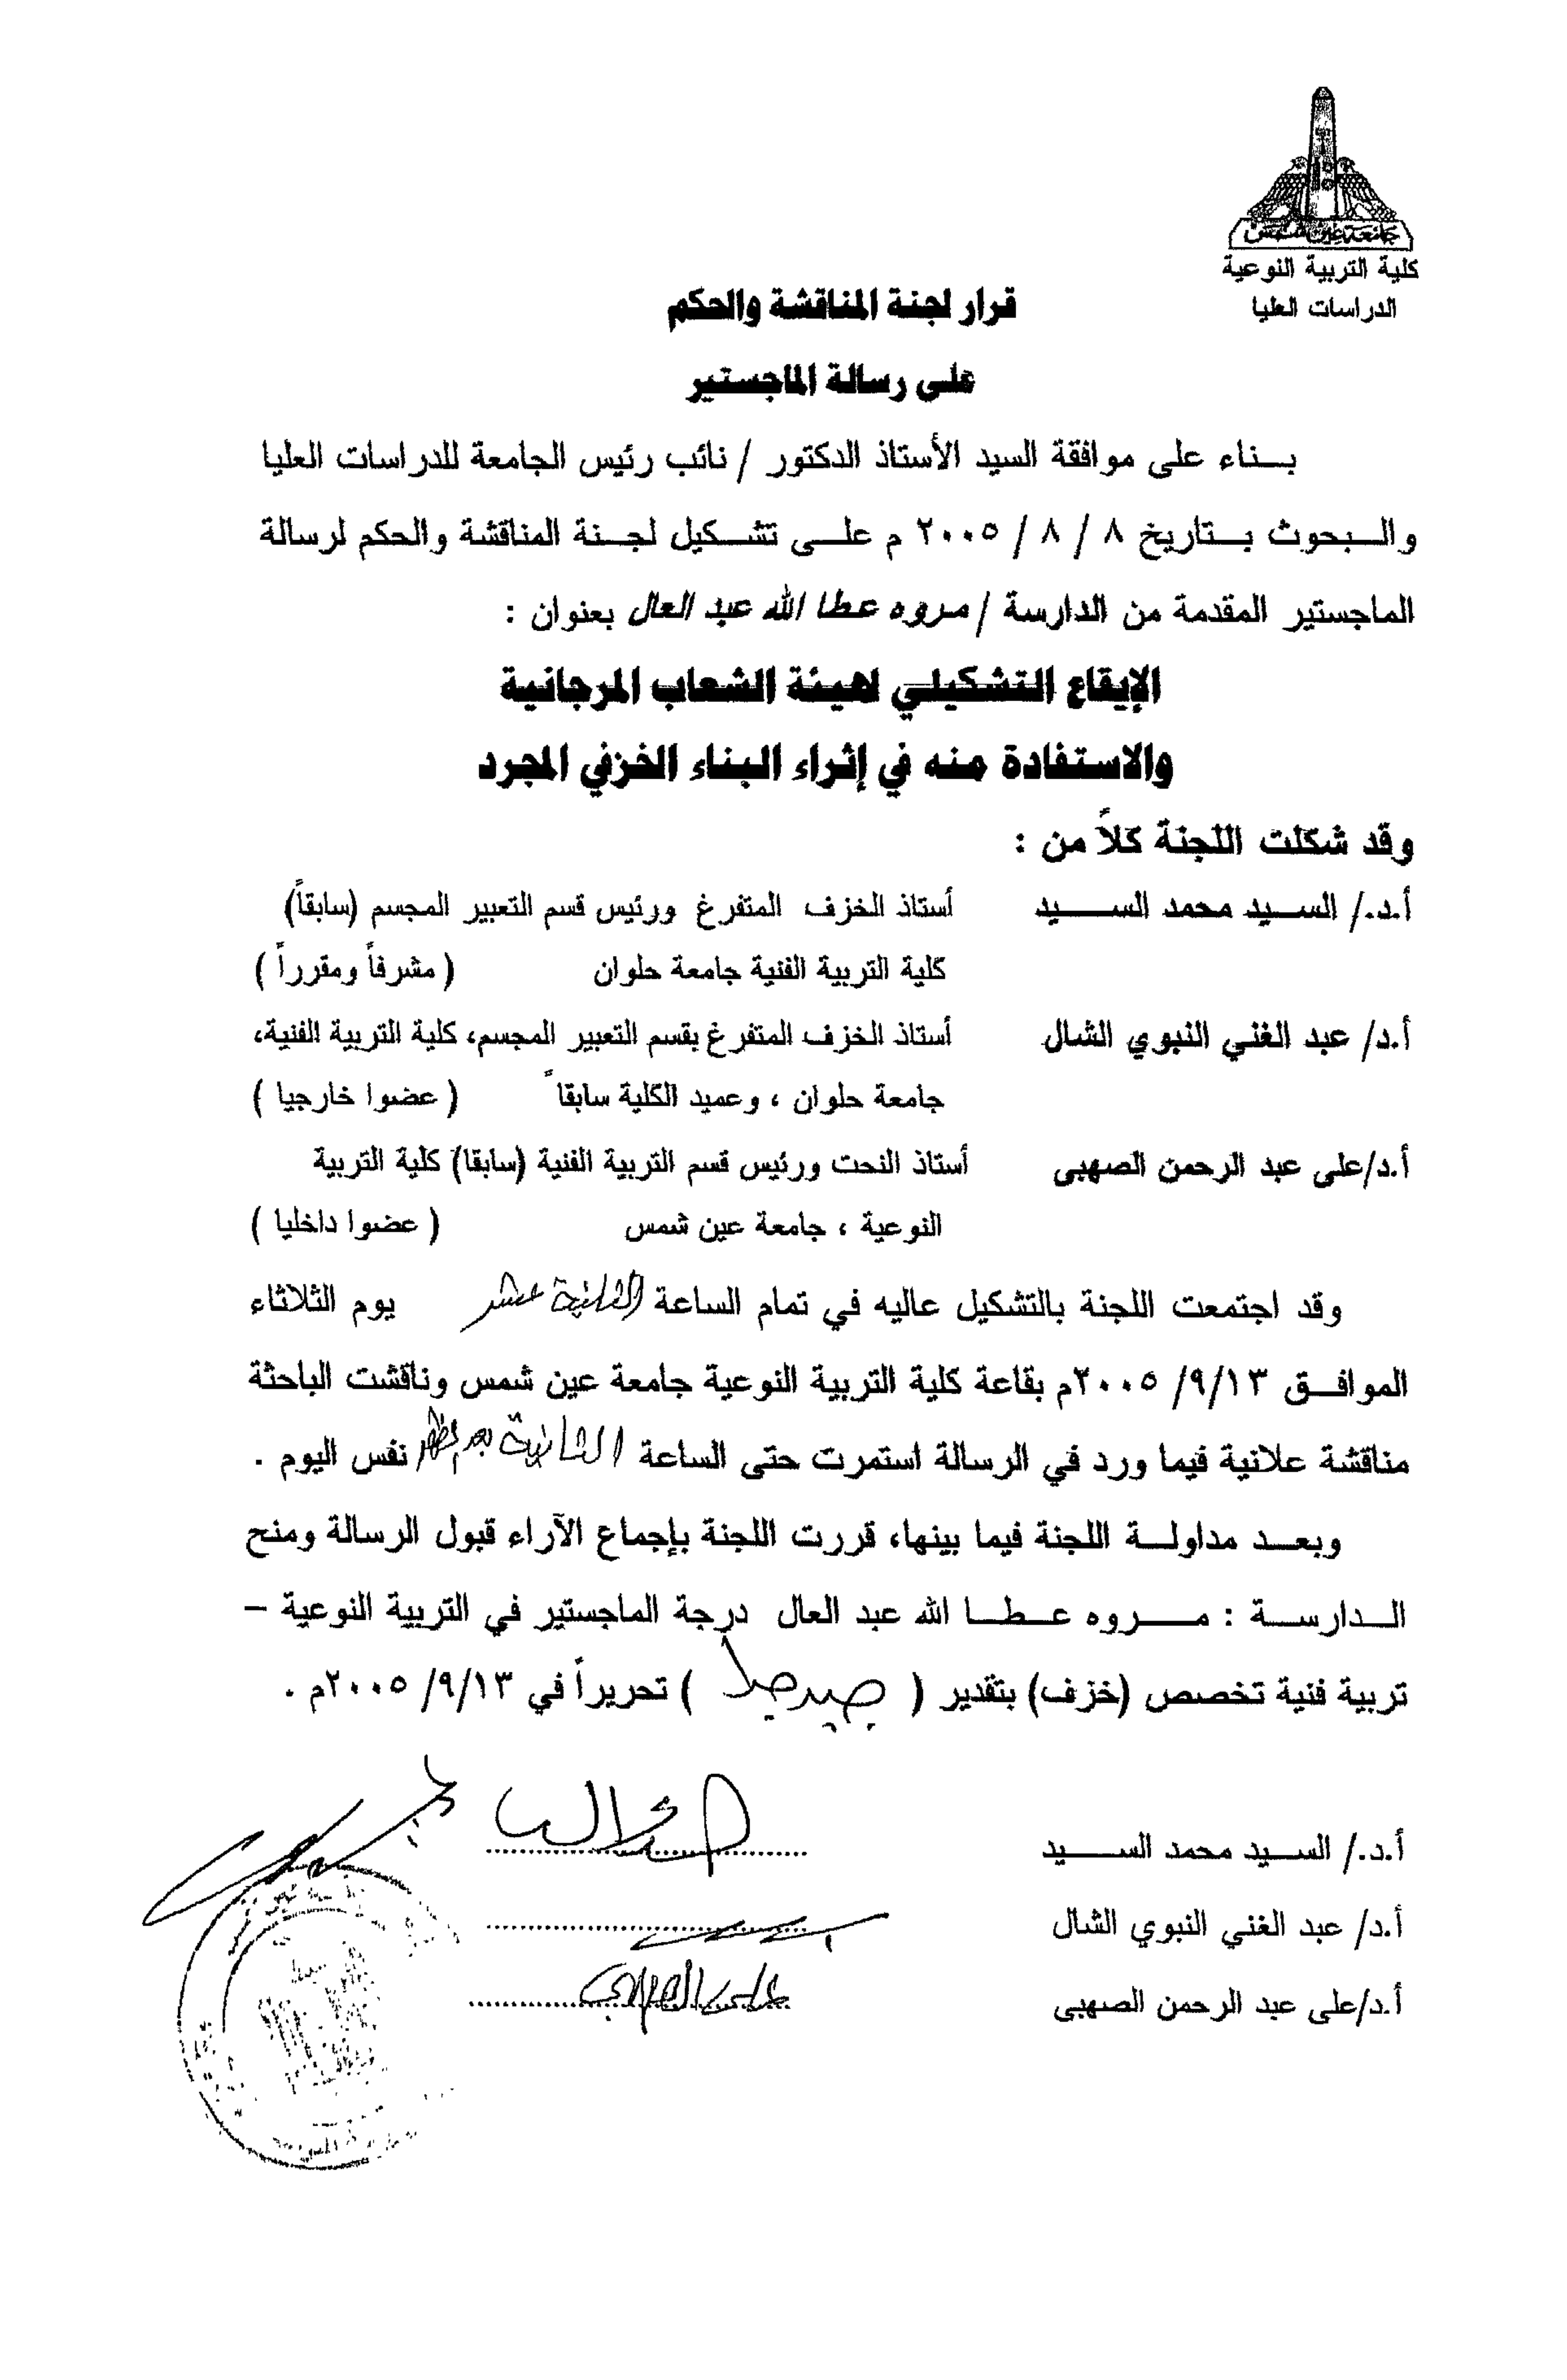 جامعة عين شمس
كلية التربية النوعية
الدراسات العليا
قرار لجنة المناقشة والحكم
على رسالة الماجستير
بناء على موافقة السيد الأستاذ الدكتور / نائب رئيس الجامعة للدراسات العليا
والبحوث بتاريخ ٨ / ٨ / ٢٠٠٥ م على تشكيل لجنة المناقشة والحكم لرسالة
الماجستير المقدمة من الدارسة / مروه عطا الله عبد العال بعنوان :
الإيقاع التشكيلي لهيئة الشعاب المرجانية
والاستفادة منه في إثراء البناء الخزفي المجرد
وقد شكلت اللجنة كلاً من :
أ.د./ السيد محمد السيد أستاذ الخزف المتفرغ ورئيس قسم التعبير المجسم (سابقاً)
كلية التربية الفنية جامعة حلوان ( مشرفاً ومقرراً )
أ.د/ عبد الغني النبوي الشال أستاذ الخزف المتفرغ بقسم التعبير المجسم، كلية التربية الفنية،
جامعة حلوان ، وعميد الكلية سابقاً ( عضوا خارجيا )
أ.د/على عبد الرحمن الصهبى أستاذ النحت ورئيس قسم التربية الفنية (سابقا) كلية التربية
النوعية ، جامعة عين شمس ( عضوا داخليا )
وقد اجتمعت اللجنة بالتشكيل عاليه في تمام الساعة الثانية عشر يوم الثلاثاء
الموافق ٢٠٠٥ /٩/١٣م بقاعة كلية التربية النوعية جامعة عين شمس وناقشت الباحثة
مناقشة علانية فيما ورد في الرسالة استمرت حتى الساعة الثانية بعد الظهر نفس اليوم .
وبعد مداولة اللجنة فيما بينها، قررت اللجنة بإجماع الآراء قبول الرسالة ومنح
الدارسة : مروه عطا الله عبد العال درجة الماجستير في التربية النوعية –
تربية فنية تخصص (خزف) بتقدير ( جيد جدا ) تحريراً في ٢٠٠٥ /٩/١٣م .
أ.د./ السيد محمد السيد
أ.د/ عبد الغني النبوي الشال
أ.د/على عبد الرحمن الصهبى على الصهبي